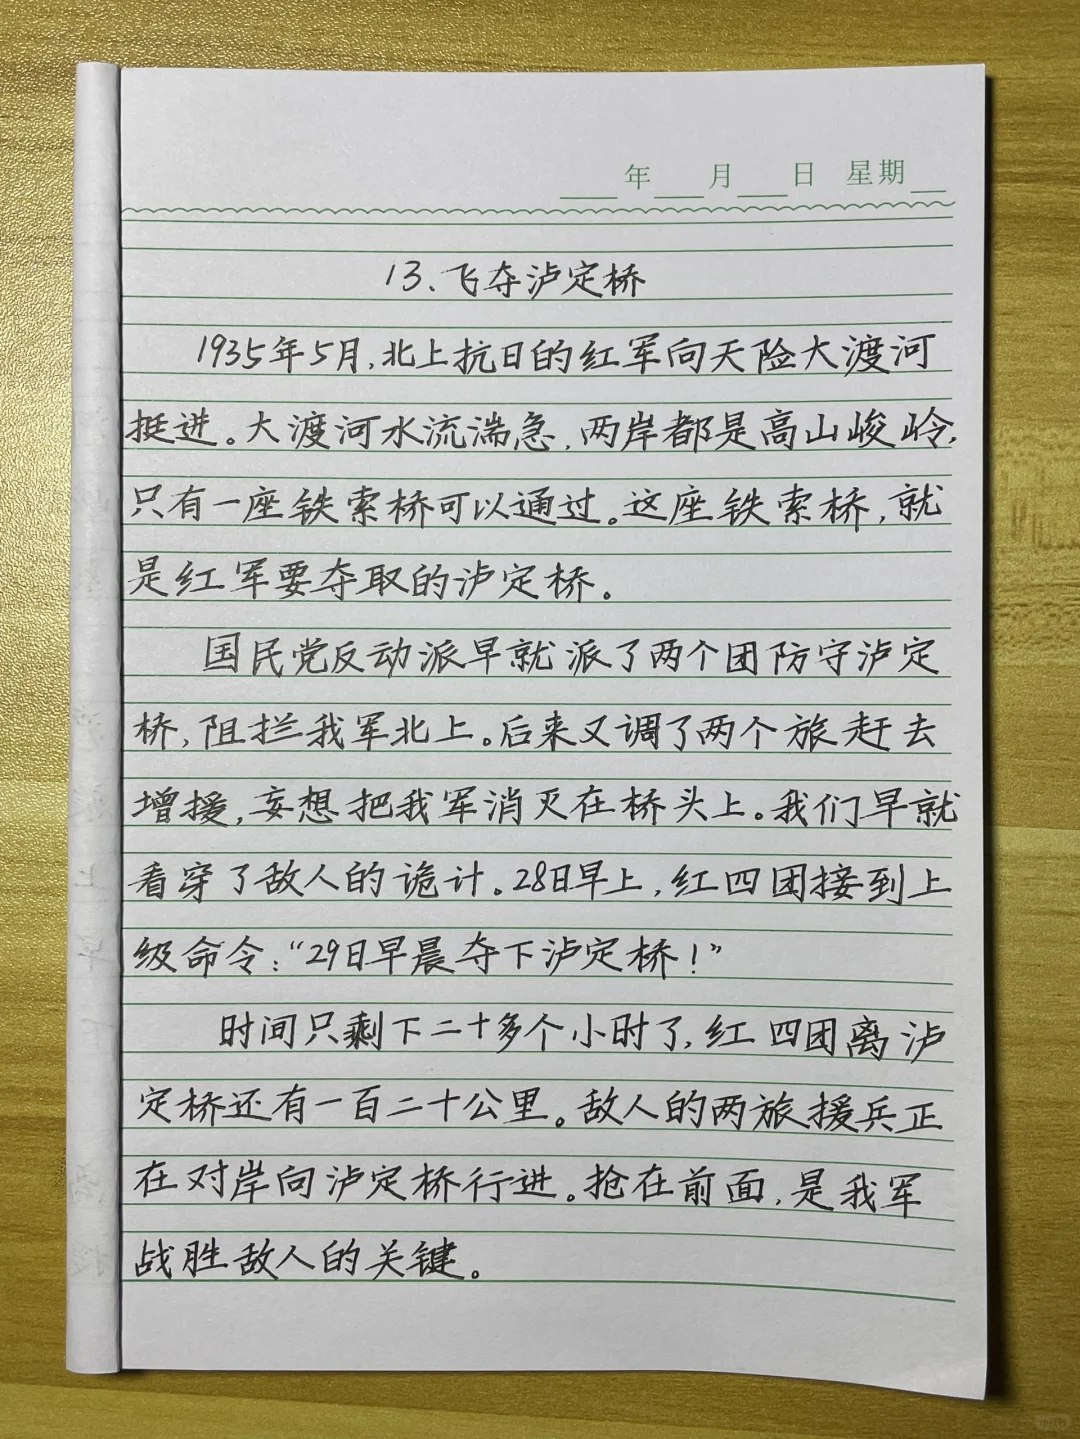 年 月 日 星期
13、飞夺泸定桥
1935年5月,北上抗日的红军向天险大渡河
挺进。大渡河水流湍急,两岸都是高山峻岭,
只有一座铁索桥可以通过。这座铁索桥,就
是红军要夺取的泸定桥。
国民党反动派早就派了两个团防守泸定
桥,阻拦我军北上。后来又调了两个旅赶去
增援,妄想把我军消灭在桥头上。我们早就
看穿了敌人的诡计。28日早上,红四团接到上
级命令:“29日早晨夺下泸定桥!”
时间只剩下二十多个小时了,红四团离泸
定桥还有一百二十公里。敌人的两旅援兵正
在对岸向泸定桥行进。抢在前面,是我军
战胜敌人的关键。